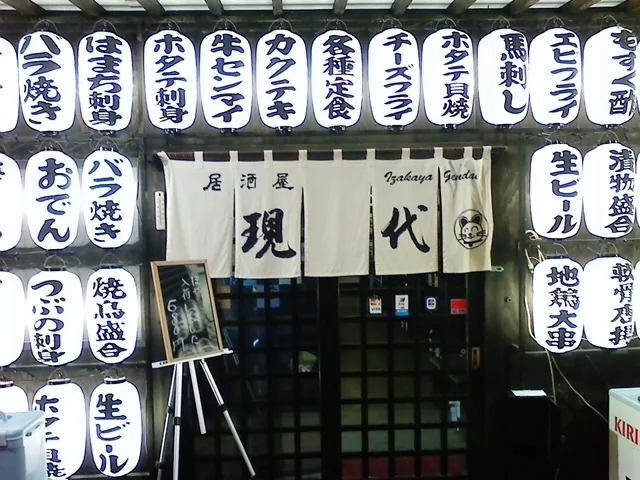 バラ焼き
はまち刺身
ホタテ刺身
牛センマイ
カクテキ
各種定食
チーズフライ
ホタテ貝焼
馬刺し
エビフライ
もずく酢
おでん
バラ焼き
居酒屋
Izakaya Gendai
現代
生ビール
漬物盛合
つぶの刺身
焼鳥盛合
入荷
680円
地鶏大串
軟骨唐揚
ホタテ貝焼
生ビール
KIRI